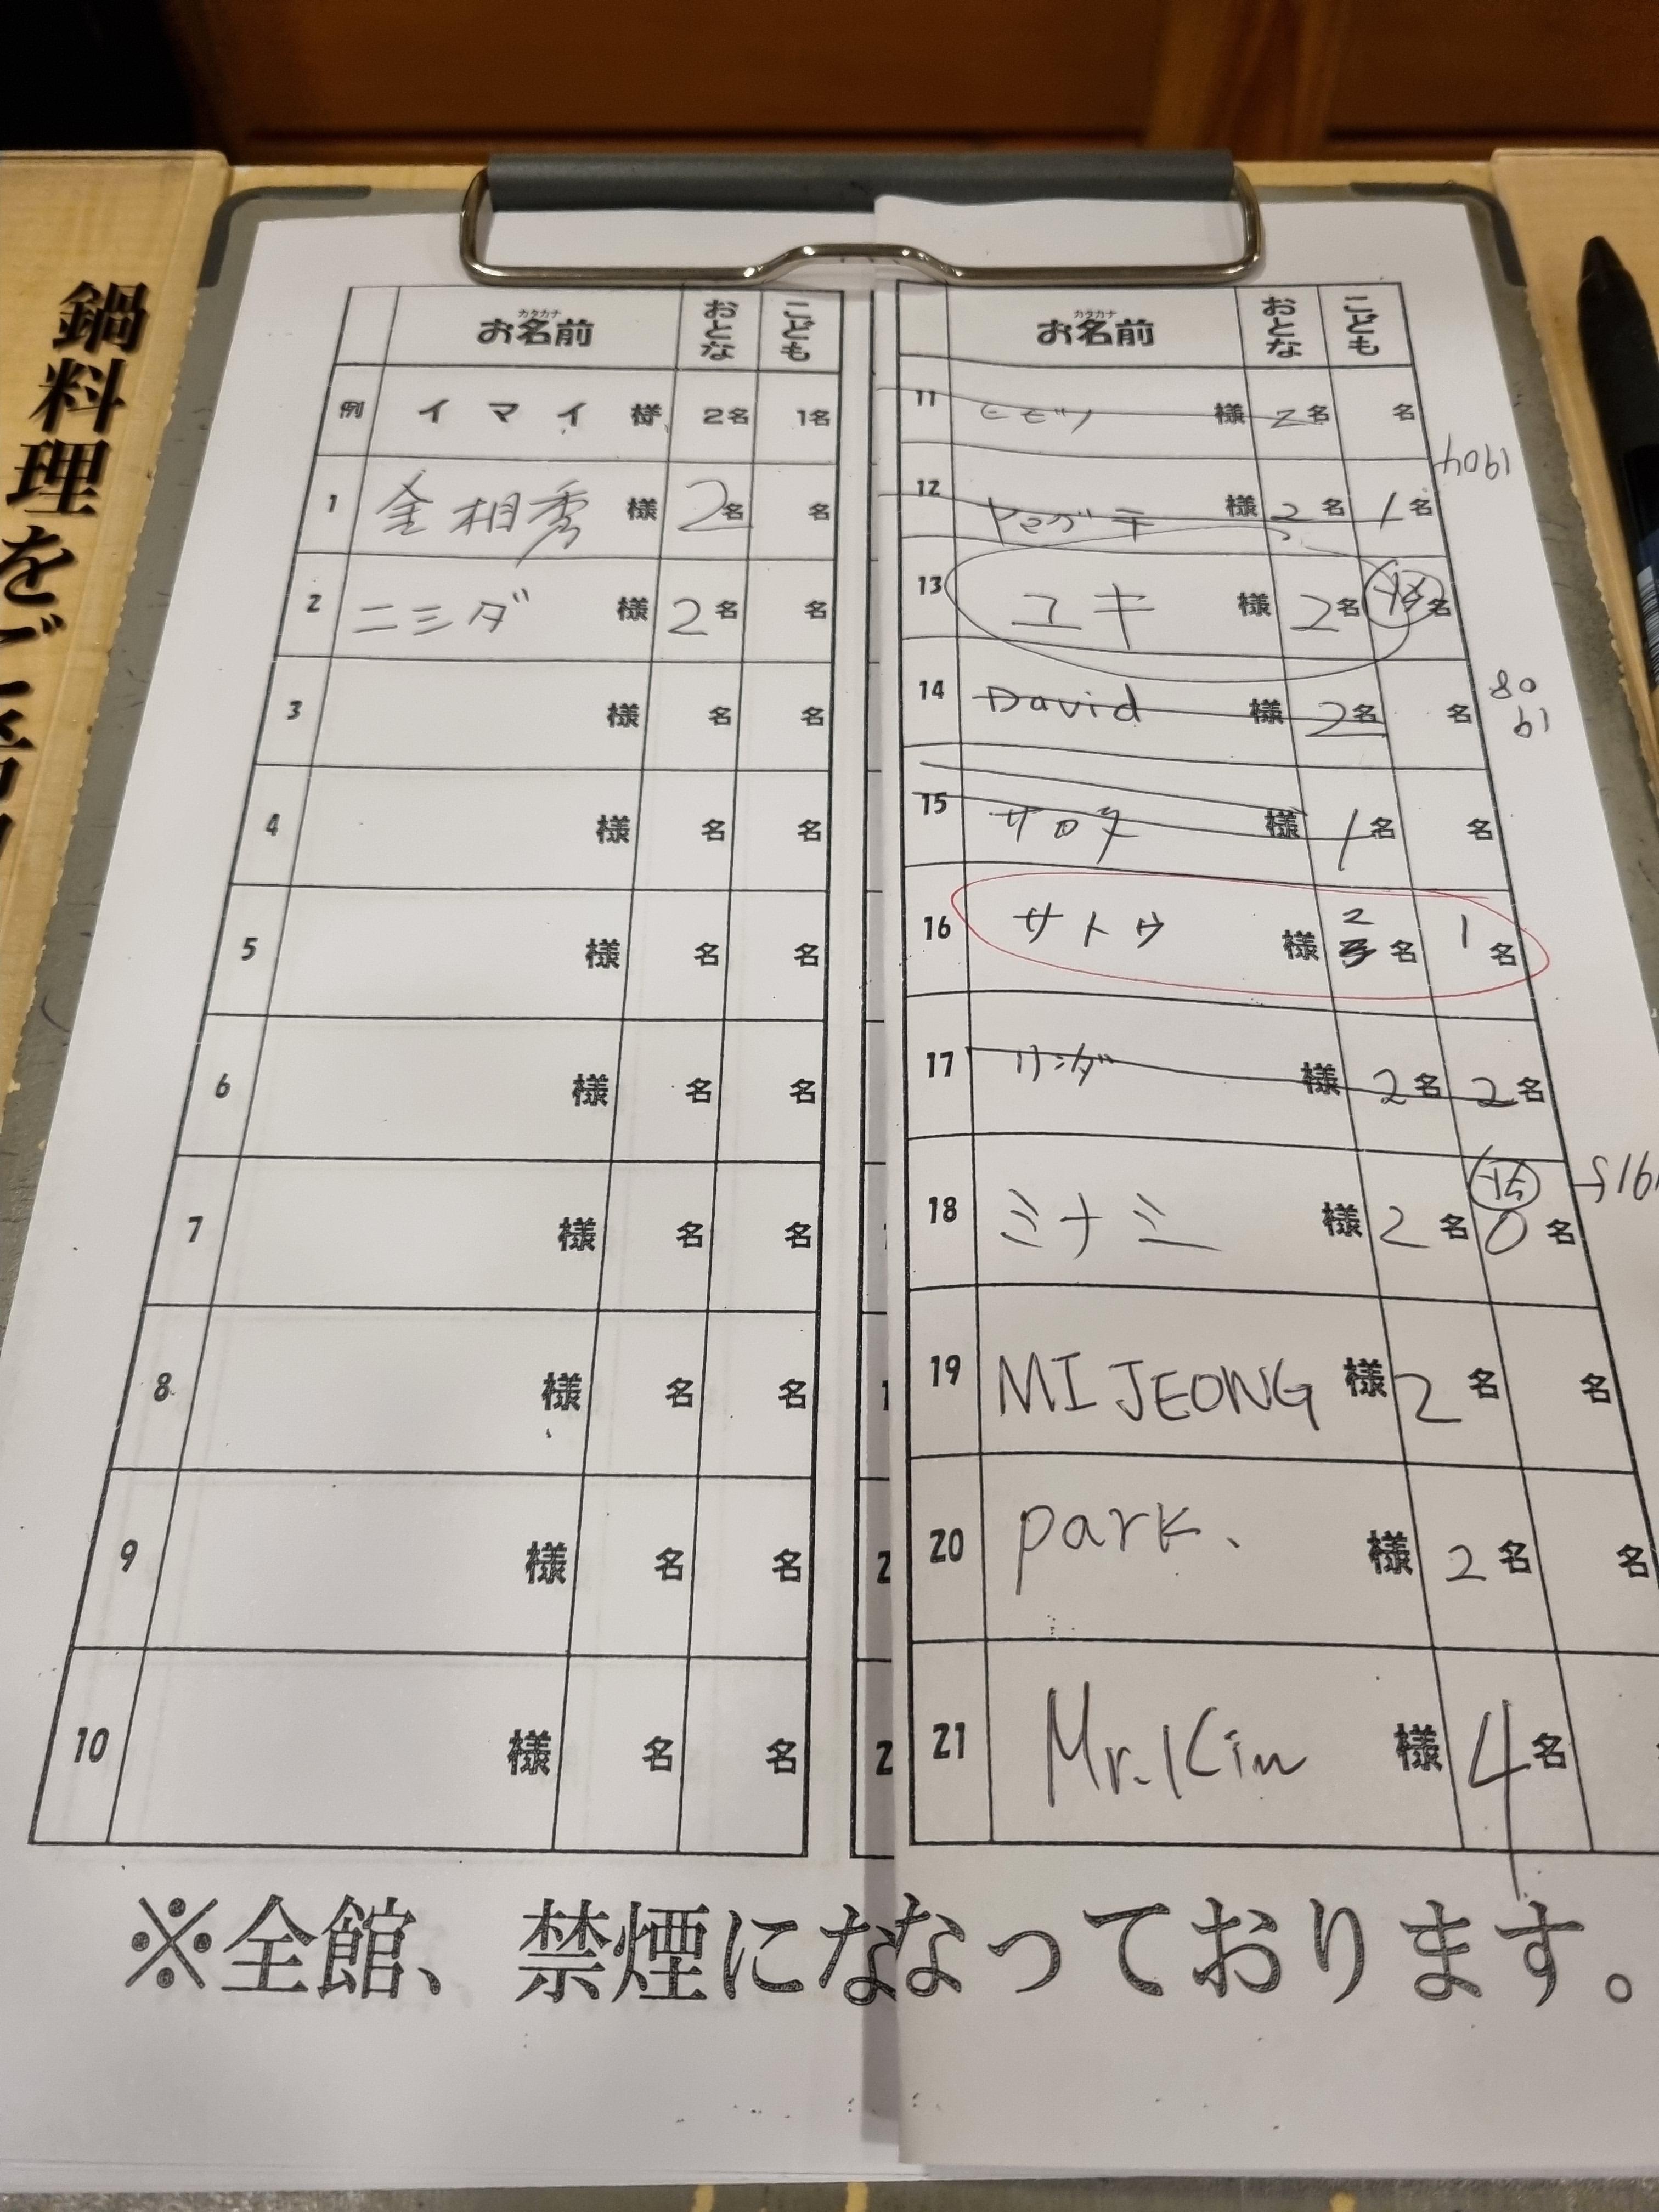 鍋料理をご
カタカナ
お名前 おとな こども
例 イマイ 様 2名 1名
1 金相秀 様 2名 名
2 ニシダ 様 2名 名
3 様 名 名
4 様 名 名
5 様 名 名
6 様 名 名
7 様 名 名
8 様 名 名
9 様 名 名
10 様 名 名
カタカナ
お名前 おとな こども
11 様 2名 名
12 様 2名 1名
1904
13 ユキ 様 2名 名
14 David 様 2名 名
15 様 1名 名
16 サトウ 様 2名 1名
17 様 2名 2名
18 ミナミ 様 2名 0名
1915
19 MI JEONG 様 2名 名
20 park. 様 2名 名
21 Mr.Kim 様 4名
※全館、禁煙にななっております。